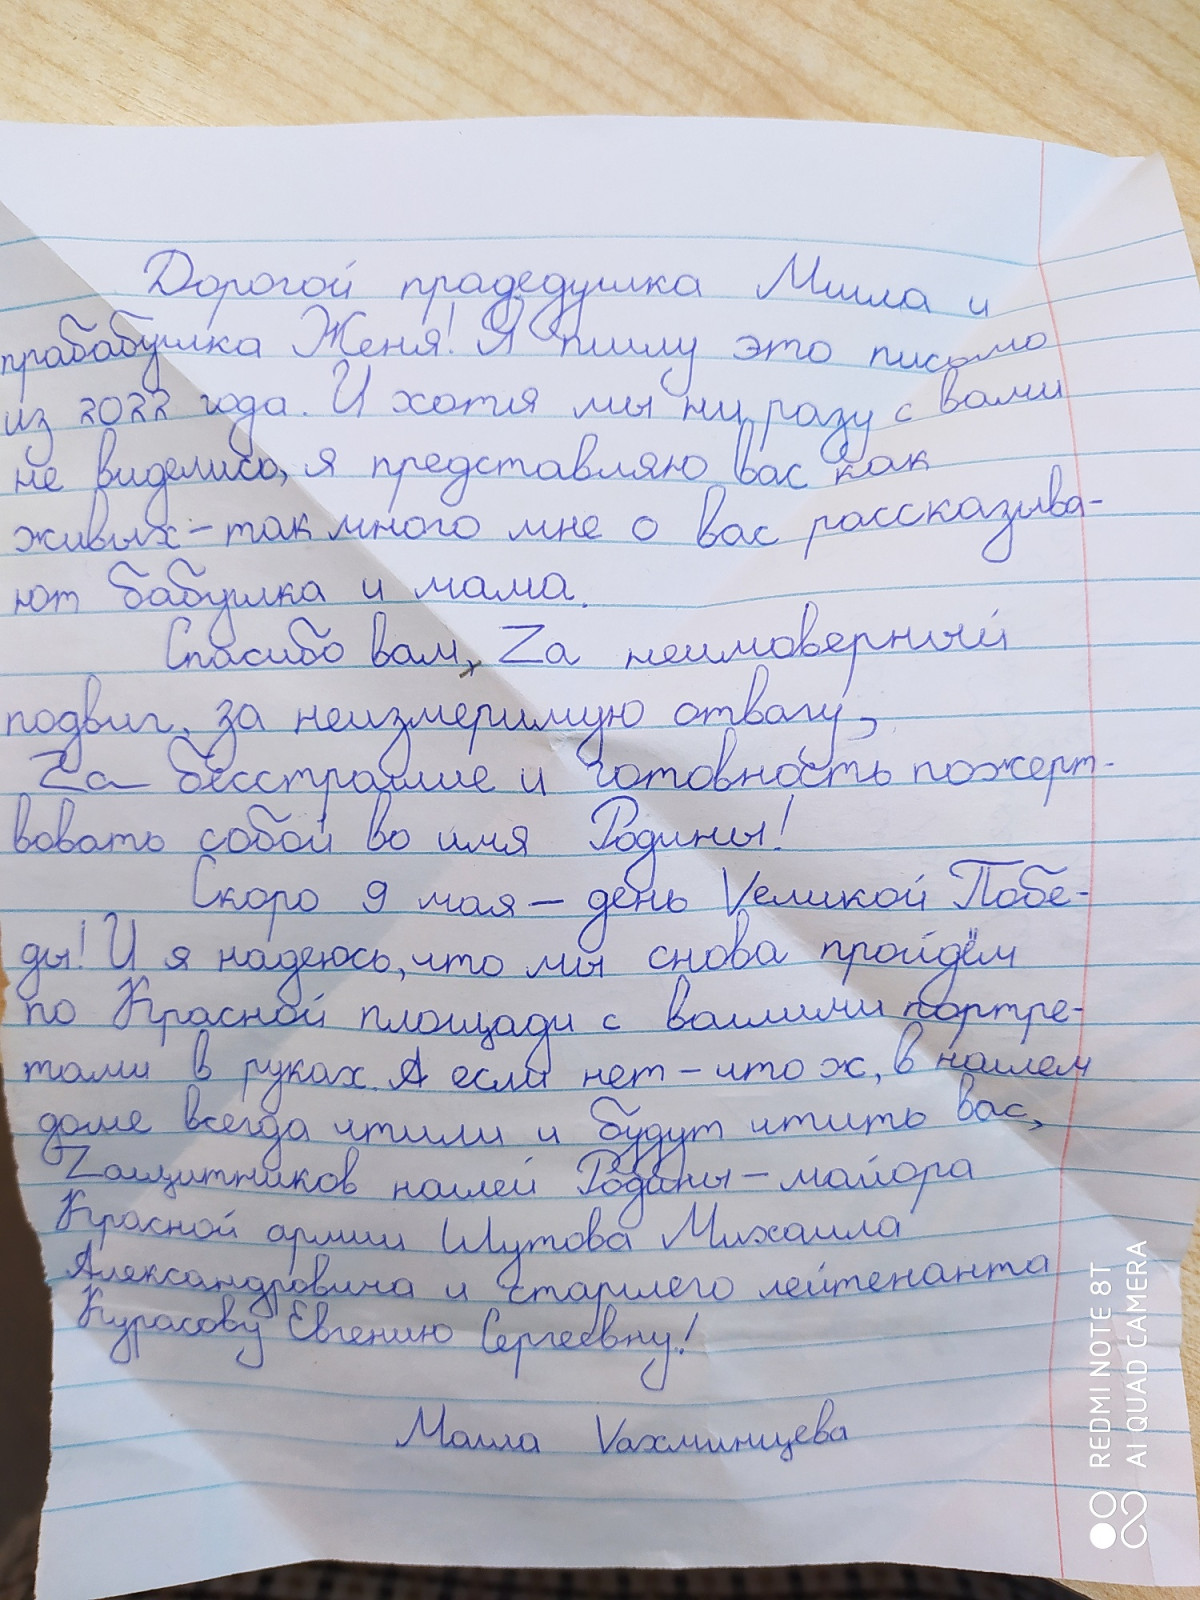 Дорогой прадедушка Миша и
прабабушка Женя! Я пишу это письмо
из 2022 года. И хотя мы ни разу с вами
не виделись, я представляю вас как
живых – так много мне о вас рассказыва-
ют бабушка и мама.
Спасибо вам, Zа неимоверный
подвиг, за неизмеримую отвагу,
Zа бесстрашие и готовность пожерт-
вовать собой во имя Родины!
Скоро 9 мая – день Vеликой Побе-
ды! И я надеюсь, что мы снова пройдём
по Красной площади с вашими портре-
тами в руках. А если нет – что ж, в нашем
доме всегда чтили и будут чтить вас,
Zащитников нашей Родины – майора
Красной армии Шутова Михаила
Александровича и старшего лейтенанта
Курасову Евгению Сергеевну!
Маша Vахминцева
REDMI NOTE 8T
AI QUAD CAMERA